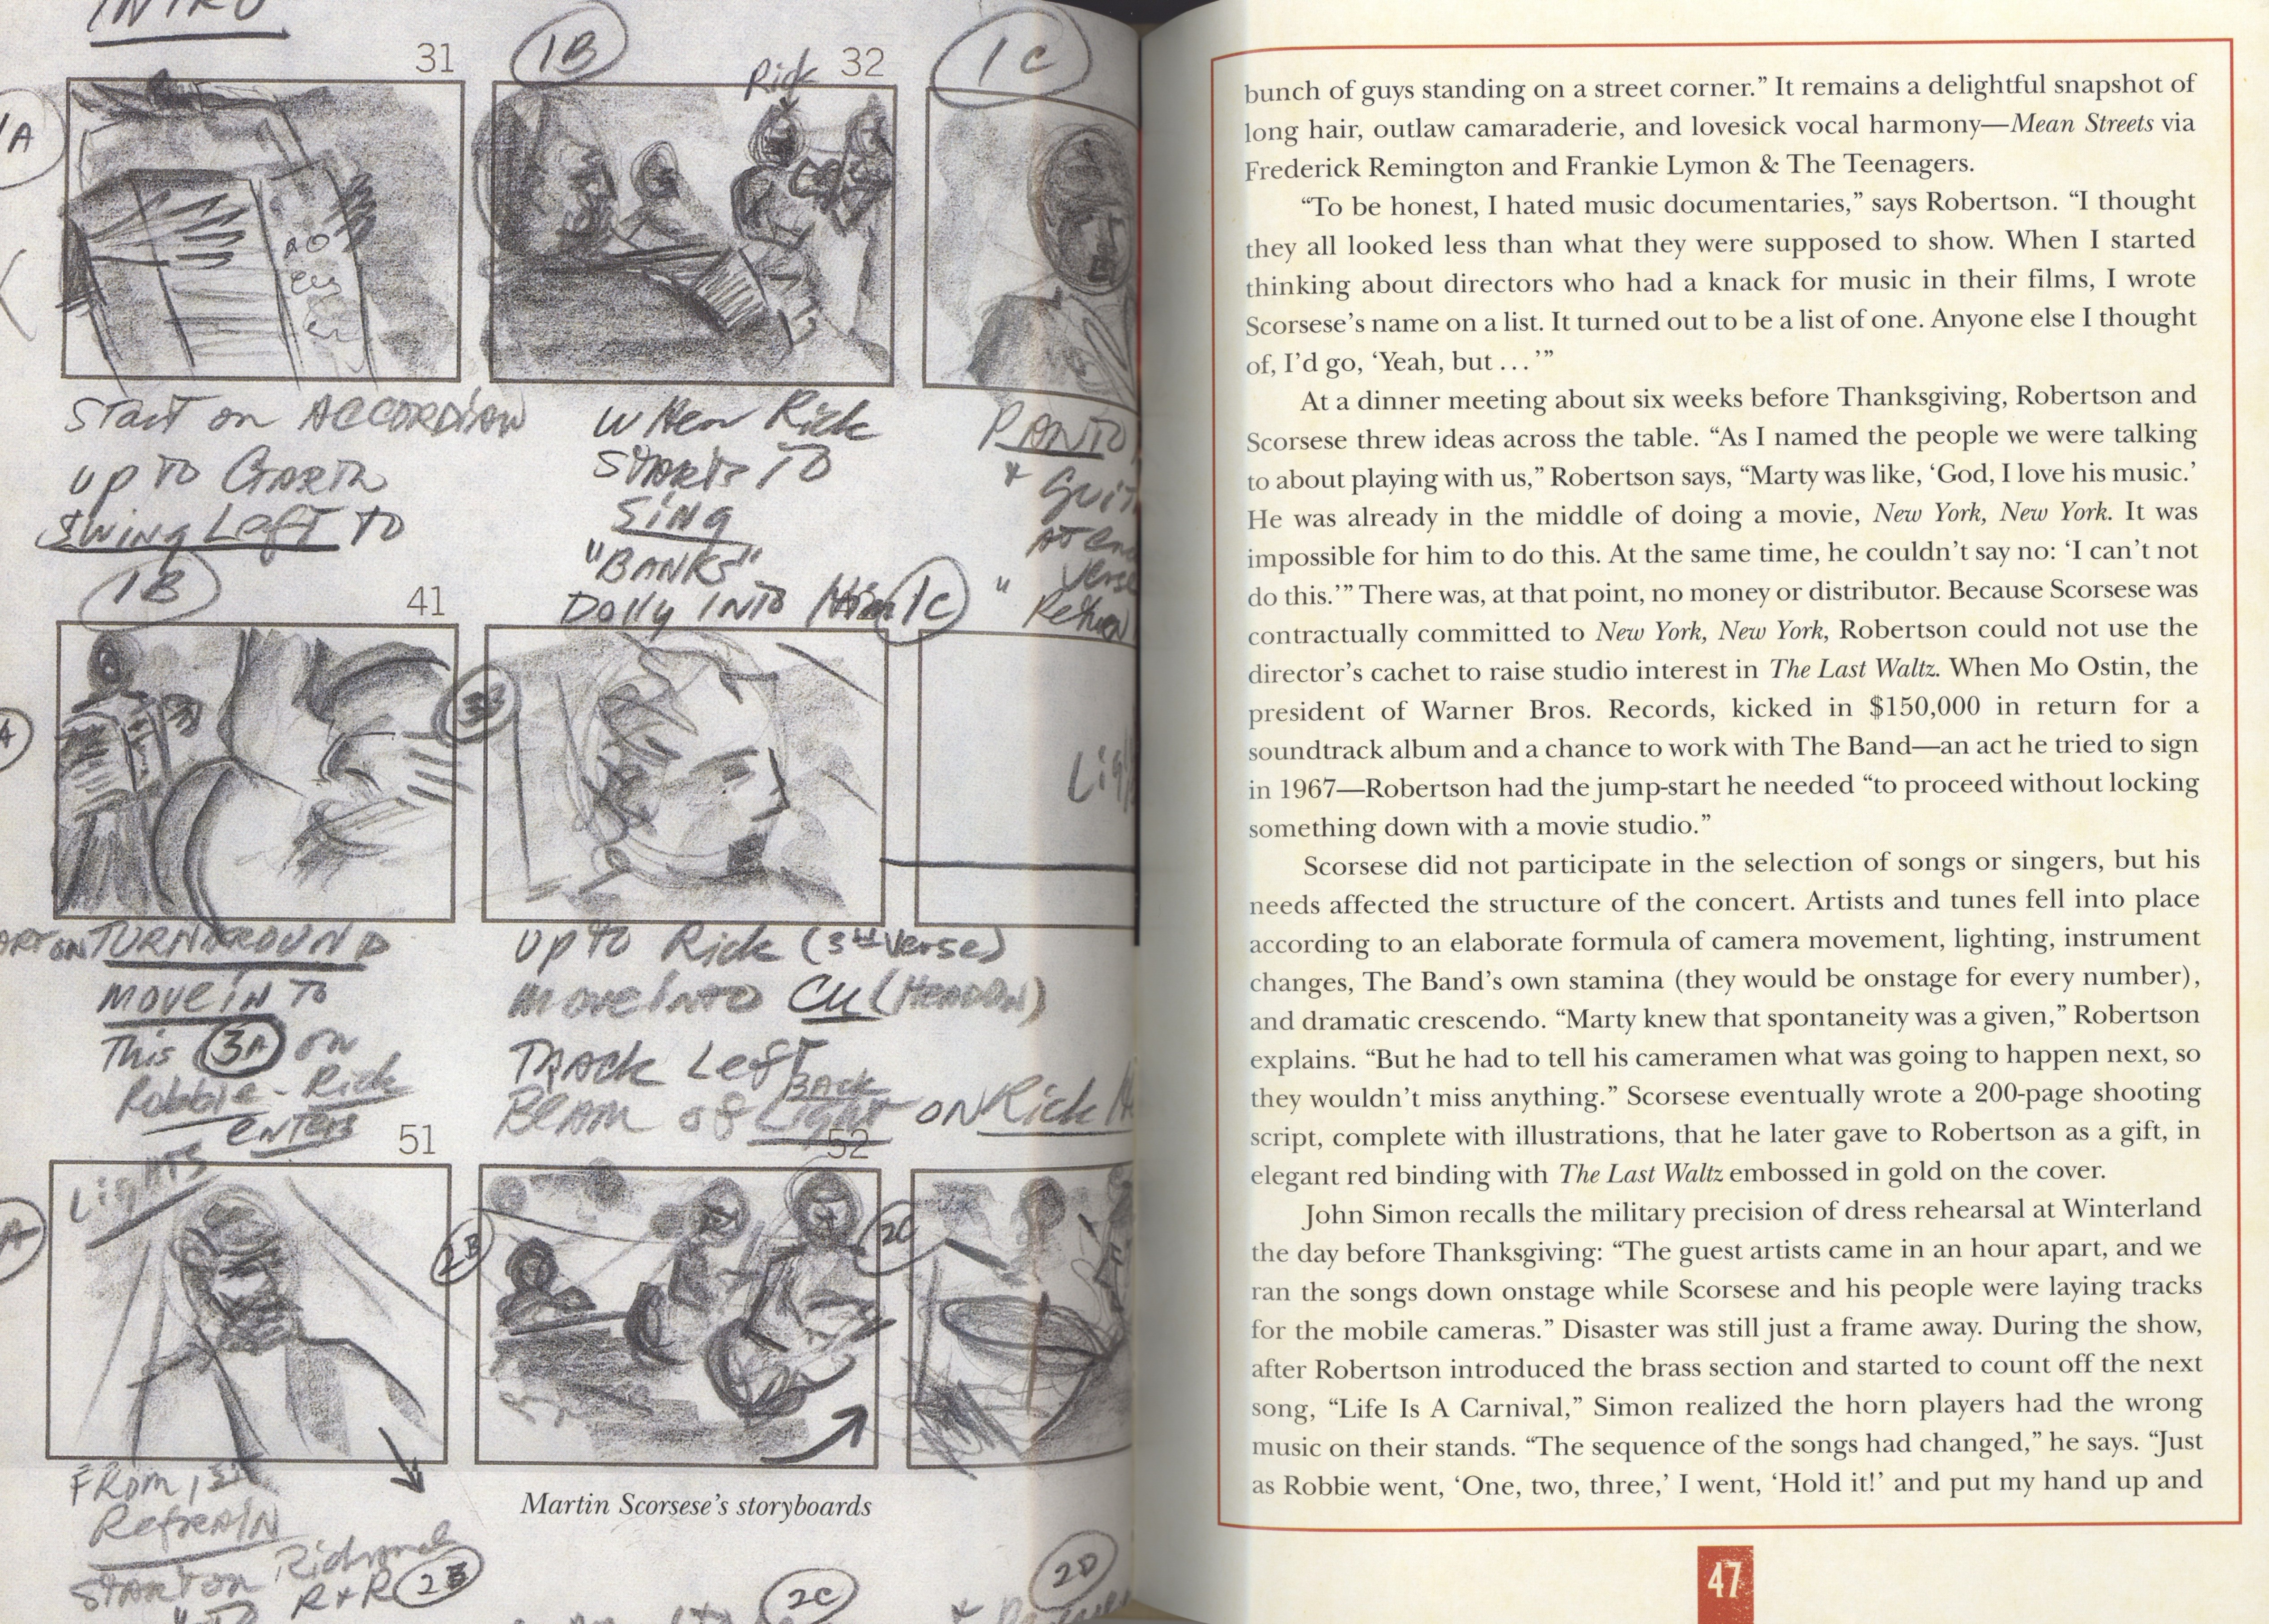 INTRO
31
1B
Rick
32
1C
1A
Start on ACCORDIAN
up to Garth
Swing Left to
When Rick
Starts to
Sing
"BANKS"
Dolly into Him
PAN TO
1B
41
1C
"
Return
4
3B
TURNAROUND
MOVE IN TO
This 3A on
Robbie - Rick
enters
up to Rick (3rd Verse)
move into CU (HEADON)
Track Left
Back
Beam of Light on Rick
51
52
Lights
2B
2C
From 1st
Refrain
Start on Richard
R+R 2B
Martin Scorsese's storyboards
2C
2D
bunch of guys standing on a street corner.” It remains a delightful snapshot of
long hair, outlaw camaraderie, and lovesick vocal harmony—Mean Streets via
Frederick Remington and Frankie Lymon & The Teenagers.
“To be honest, I hated music documentaries,” says Robertson. “I thought
they all looked less than what they were supposed to show. When I started
thinking about directors who had a knack for music in their films, I wrote
Scorsese’s name on a list. It turned out to be a list of one. Anyone else I thought
of, I’d go, ‘Yeah, but . . . ’”
At a dinner meeting about six weeks before Thanksgiving, Robertson and
Scorsese threw ideas across the table. “As I named the people we were talking
to about playing with us,” Robertson says, “Marty was like, ‘God, I love his music.’
He was already in the middle of doing a movie, New York, New York. It was
impossible for him to do this. At the same time, he couldn’t say no: ‘I can’t not
do this.’” There was, at that point, no money or distributor. Because Scorsese was
contractually committed to New York, New York, Robertson could not use the
director’s cachet to raise studio interest in The Last Waltz. When Mo Ostin, the
president of Warner Bros. Records, kicked in $150,000 in return for a
soundtrack album and a chance to work with The Band—an act he tried to sign
in 1967—Robertson had the jump-start he needed “to proceed without locking
something down with a movie studio.”
Scorsese did not participate in the selection of songs or singers, but his
needs affected the structure of the concert. Artists and tunes fell into place
according to an elaborate formula of camera movement, lighting, instrument
changes, The Band’s own stamina (they would be onstage for every number),
and dramatic crescendo. “Marty knew that spontaneity was a given,” Robertson
explains. “But he had to tell his cameramen what was going to happen next, so
they wouldn’t miss anything.” Scorsese eventually wrote a 200-page shooting
script, complete with illustrations, that he later gave to Robertson as a gift, in
elegant red binding with The Last Waltz embossed in gold on the cover.
John Simon recalls the military precision of dress rehearsal at Winterland
the day before Thanksgiving: “The guest artists came in an hour apart, and we
ran the songs down onstage while Scorsese and his people were laying tracks
for the mobile cameras.” Disaster was still just a frame away. During the show,
after Robertson introduced the brass section and started to count off the next
song, “Life Is A Carnival,” Simon realized the horn players had the wrong
music on their stands. “The sequence of the songs had changed,” he says. “Just
as Robbie went, ‘One, two, three,’ I went, ‘Hold it!’ and put my hand up and
47